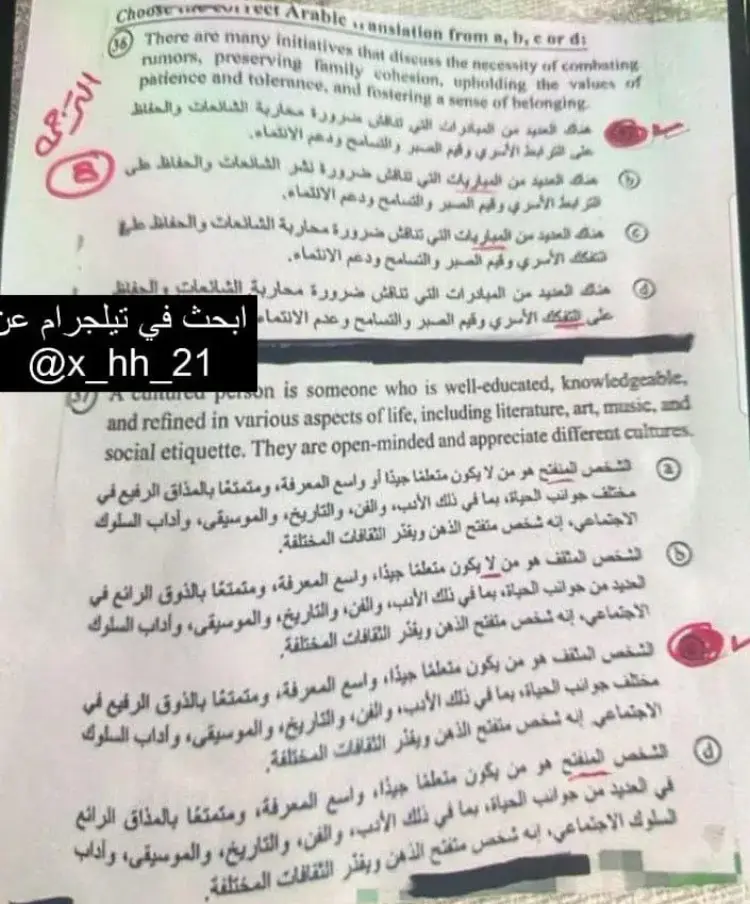 Choose the correct Arabic translation from a, b, c or d:
36 There are many initiatives that discuss the necessity of combating
rumors, preserving family cohesion, upholding the values of
patience and tolerance, and fostering a sense of belonging.
الترجمة
8
هناك العديد من المبادرات التي تناقش ضرورة محاربة الشائعات والحفاظ
على الترابط الأسري وقيم الصبر والتسامح ودعم الانتماء.
b هناك العديد من المباريات التي تناقش ضرورة نشر الشائعات والحفاظ على
الترابط الأسري وقيم الصبر والتسامح ودعم الانتماء.
c هناك العديد من المباريات التي تناقش ضرورة محاربة الشائعات والحفاظ على
التفكك الأسري وقيم الصبر والتسامح ودعم الانتماء.
d هناك العديد من المبادرات التي تناقش ضرورة محاربة الشائعات والحفاظ
على التفكك الأسري وقيم الصبر والتسامح وعدم الانتماء
ابحث في تيلجرام عن
@x_hh_21
37 A cultured person is someone who is well-educated, knowledgeable,
and refined in various aspects of life, including literature, art, music, and
social etiquette. They are open-minded and appreciate different cultures.
a الشخص المنفتح هو من لا يكون متعلمًا جيدًا أو واسع المعرفة، ومتمتعًا بالمذاق الرفيع في
مختلف جوانب الحياة، بما في ذلك الأدب، والفن، والتاريخ، والموسيقى، وآداب السلوك
الاجتماعي، إنه شخص متفتح الذهن ويقدّر الثقافات المختلفة.
b الشخص المثقف هو من لا يكون متعلمًا جيدًا، واسع المعرفة، ومتمتعًا بالذوق الرائع في
العديد من جوانب الحياة، بما في ذلك الأدب، والفن، والتاريخ، والموسيقى، وآداب السلوك
الاجتماعي، إنه شخص متفتح الذهن ويقدّر الثقافات المختلفة.
الشخص المثقف هو من يكون متعلمًا جيدًا، واسع المعرفة، ومتمتعًا بالذوق الرفيع في
مختلف جوانب الحياة، بما في ذلك الأدب، والفن، والتاريخ، والموسيقى، وآداب السلوك
الاجتماعي. إنه شخص متفتح الذهن ويقدّر الثقافات المختلفة.
d الشخص المنفتح هو من يكون متعلمًا جيدًا، واسع المعرفة، ومتمتعًا بالمذاق الرائع
في العديد من جوانب الحياة، بما في ذلك الأدب، والفن، والتاريخ، والموسيقى، وآداب
السلوك الاجتماعي، إنه شخص متفتح الذهن ويقدّر الثقافات المختلفة.